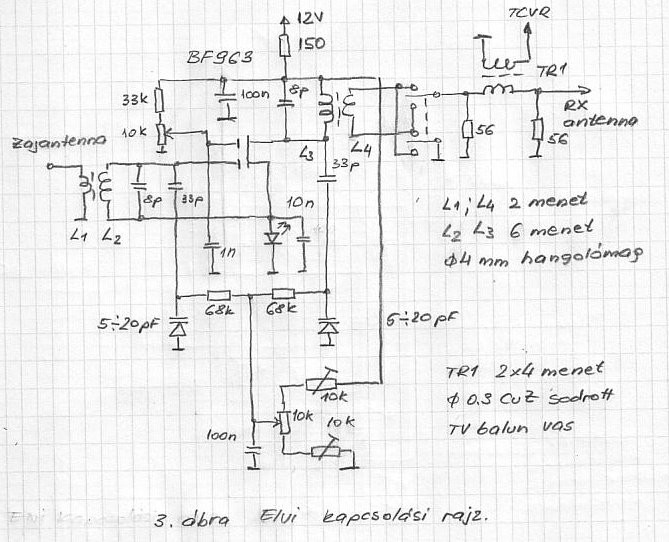 12V
TCVR
150
BF963
TR1
100n
8p
33k
10k
RX
antenna
56
56
Zajantenna
L3
L4
33p
8p
33p
10n
L1
L2
1n
L1; L4 2 menet
L2 L3 6 menet
φ4 mm hangolómag
68k
68k
5÷20pF
5÷20pF
TR1 2x4 menet
φ 0.3 CuZ sodrott
TV balun vas
10k
10k
10k
100n
3. ábra Elvi kapcsolási rajz.